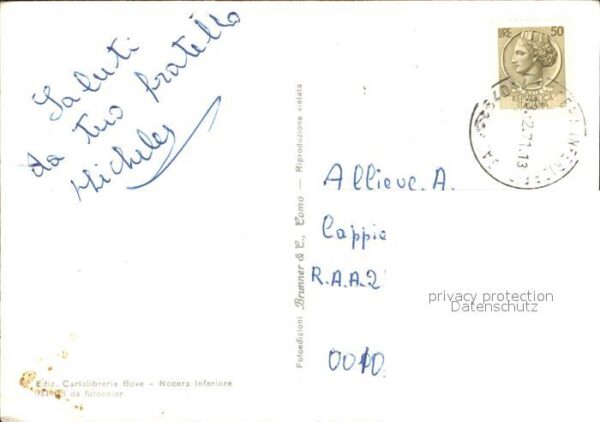 Saluti
da tuo fratello
Michele
LIRE 50
REPUBBLICA
ITALIANA
Fotoedizioni Brunner & C., Como — Riproduzione vietata
Allieve. A.
Cappie
R.A.A.2
privacy protection
Datenschutz
Ediz. Cartolibreria Bove - Nocera Inferiore
da fotocolor